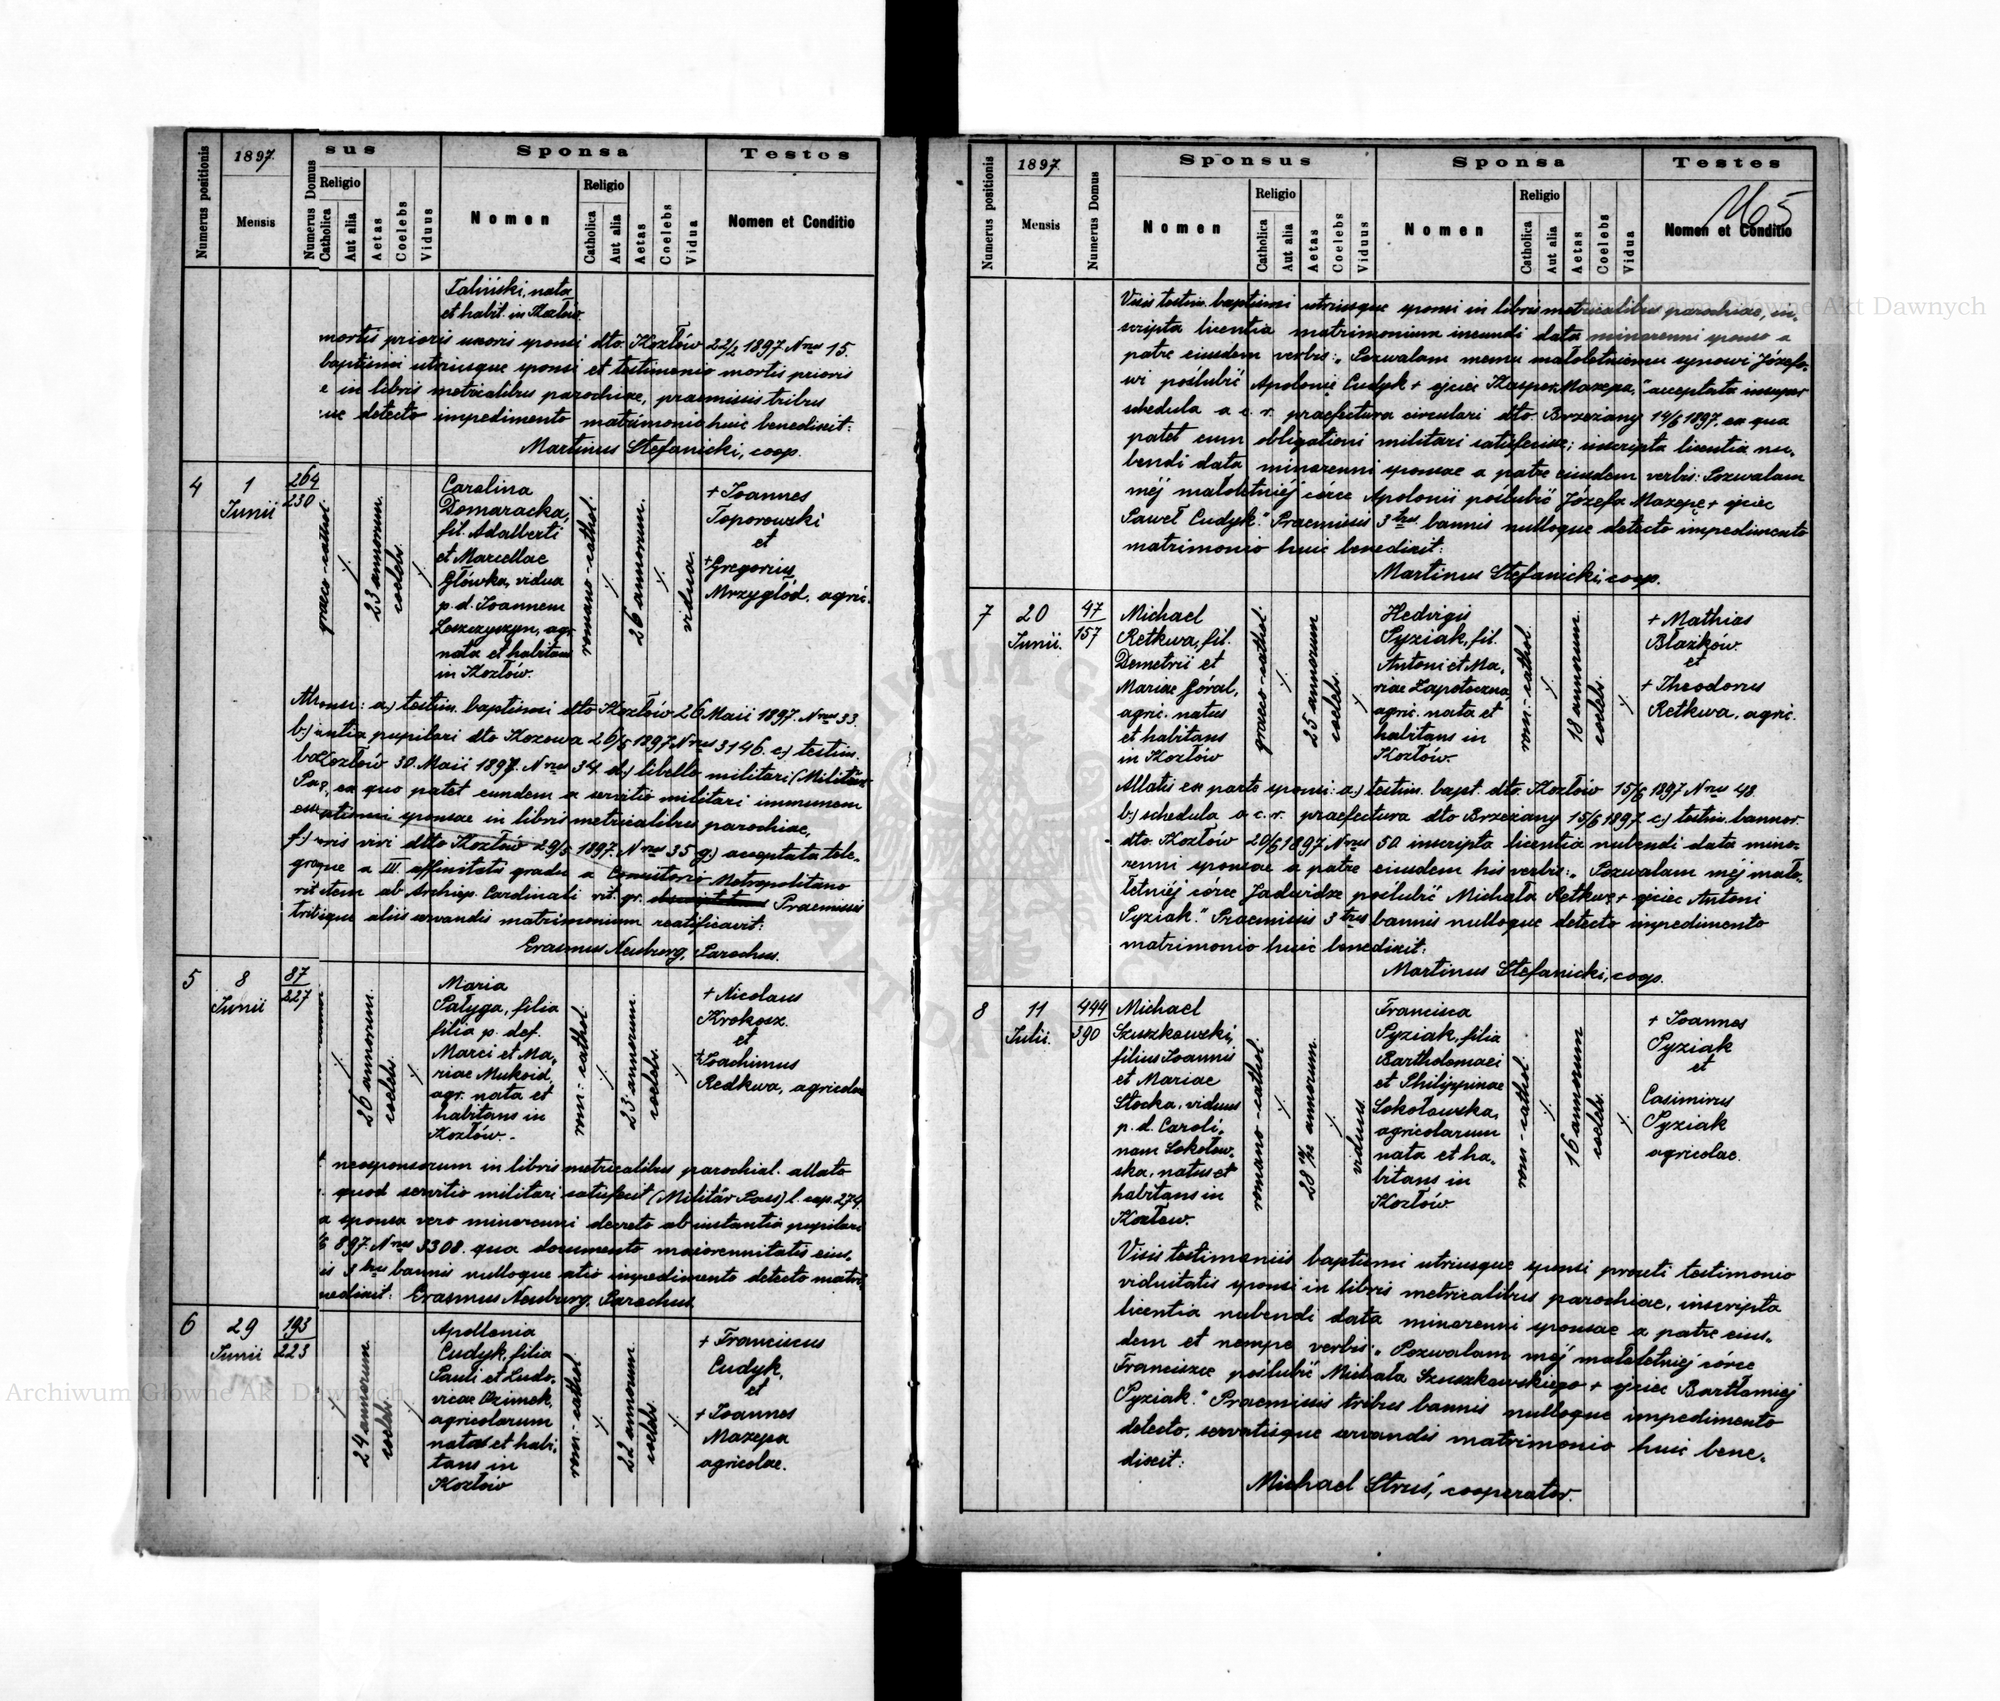 1897.
sus
Sponsa
Testes
Numerus positionis
Mensis
Numerus Domus
Religio
Catholica
Aut alia
Aetas
Coelebs
Viduus
Nomen
Religio
Catholica
Aut alia
Aetas
Coelebs
Vidua
Nomen et Conditio
Taliński, nata
et habit. in Kozłów.
mortis prioris uxoris sponsi dto. Kozłów 22/2 1897 Nrus 15.
baptismi utriusque sponsi et testimonio mortis prioris
e in libris metricalibus parochiae, praemissis tribus
ue detecto impedimento matrimonio huic benedixit:
Martinus Stefanicki, coop.
4
1
Junii
264
230
graeco-cathol.
23 annorum.
coelebs.
Carolina
Domaracka,
fil. Adalberti
et Marcellae
Główka, vidua
p. d. Joannem
Leszczyszyn, agr.
nata et habitans
in Kozłów.
romano-cathol.
26 annorum.
vidua.
+ Joannes
Toporowski
et
+ Gregorius
Mrzygłod. agric.
sponsi: a.) testim. baptismi dto Kozłów 26 Maii 1897. Nrus 33.
b.) antia pupilari dto Kozowa 26/5 1897 Nrus 3146. c.) testim.
Kozłów 30. Maii 1897. Nrus 34. d.) libello militari (Militär
Pass, ex quo patet eundem a servitio militari immunem
sponsae in libris metricalibus parochiae,
f.) viri dto Kozłów 29/5 1897. Nrus 35 g.) acceptata tole-
que a III. affinitatis gradu a Consistorio Metropolitano
item ab Archiep. Cardinali rit. gr. Praemissis
aliis servandis matrimonium ratificavit:
Erasmus Neuburg, Parochus.
5
8
Junii
87
227
26 annorum.
coelebs.
Maria
Pałyga, filia
filia p. def.
Marci et Ma-
riae Mukoid,
agr. nata et
habitans in
Kozłów.-
rom: cathol.
23 annorum.
coelebs.
+ Nicolaus
Krokosz.
et
+ Joachimus
Redkwa, agricolae
neosponsorum in libris metricalibus parochial. allato
quod servitio militari satisfecit (Militär Pass) l. exp. 274.
a sponsa vero minorenni decreto ab instantia pupilari
897. Nrus 3308. qua documento maiorennitatis eius,
is 3bus bannis nulloque alio impedimento detecto matri
nedixit: Erasmus Neuburg, Parochus.
6
29
Junii
193
223
24 annorum.
coelebs.
Apollonia
Cudyk, filia
Pauli et Ludo-
vicae Dzimek,
agricolarum
nata et habi-
tans in
Kozłów
rom: cathol.
22 annorum.
coelebs.
+ Franciscus
Cudyk,
et
+ Joannes
Mazepa
agricolae.
1897.
Sponsus
Sponsa
Testes
Numerus positionis
Mensis
Numerus Domus
Nomen
Religio
Catholica
Aut alia
Aetas
Coelebs
Viduus
Nomen
Religio
Catholica
Aut alia
Aetas
Coelebs
Vidua
Nomen et Conditio
Visis testim. baptismi utriusque sponsi in libris metricalibus parochiae, in-
scripta licentia matrimonium ineundi data minorenni sponso a
patre eiusdem verbis: „Pozwalam memu małoletniemu synowi Józefo-
wi poślubić Apolonię Cudyk + ojciec Kasper Mazepa," acceptata insuper
schedula a c. r. praefectura circulari dto Brzeżany 14/6 1897. ex qua
patet eum obligationi militari satisfecisse; inscripta licentia nu-
bendi data minorenni sponsae a patre eiusdem verbis: Pozwalam
mėj małoletniėj córce Apolonii poślubić Józefa Mazepę + ojciec
Paweł Cudyk." Praemissis 3tres bannis nulloque detecto impedimento
matrimonio huic benedixit:
Martinus Stefanicki, coop.
7
20
Junii.
47
157
Michael
Retkwa, fil.
Demetrii et
Mariae Góral,
agric. natus
et habitans
in Kozłów
graeco-cathol.
25 annorum
coelebs.
Hedvigis
Pyziak, fil.
Antoni et Ma-
riae Zapotoczna
agric. nata et
habitans in
Kozłów.
rom:-cathol.
18 annorum.
coelebs.
+ Mathias
Błazków.
et
+ Theodorus
Retkwa, agric.
Allatis ex parte sponsi: a.) testim. bapt. dto. Kozłów 15/6 1897 Nrus 48.
b.) schedula a c. r. praefectura dto Brzeżany 15/6 1897 c.) testim. bannor.
dto. Kozłów 20/6 1897 Nrus 50. inscripta licentia nubendi data mino-
renni sponsae a patre eiusdem his verbis: „Pozwalam mėj mało-
letniėj córce Jadwidze poślubić Michała Retkwę + ojciec Antoni
Pyziak." Praemissis 3tres bannis nulloque detecto impedimento
matrimonio huic benedixit:
Martinus Stefanicki, coop.
8
11
Julii.
444
390
Michael
Szuszkowski,
filius Joannis
et Mariae
Stocka, viduus
p. d. Caroli-
nam Sokołow-
ska, natus et
habitans in
Kozłow.
romano-cathol.
28 annorum.
viduus.
Francisca
Pyziak, filia
Bartholomaei
et Philippinae
Sokołowska,
agricolarum
nata et ha-
bitans in
Kozłów.
rom:-cathol.
16 annorum
coelebs.
+ Joannes
Pyziak
et
Casimirus
Pyziak
agricolae.
Visis testimoniis baptismi utriusque sponsi prouti testimonio
viduitatis sponsi in libris metricalibus parochiae, inscripta
licentia nubendi data minorenni sponsae a patre eius-
dem et nempe verbis: „Pozwalam mėj małoletniėj córce
Franciszce poślubić Michała Szuszkowskiego + ojciec Bartłomiej
Pyziak." Praemissis tribus bannis nulloque impedimento
detecto, servatisque servandis matrimonio huic bene-
dixit:
Michael Struś, cooperator.
Archiwum Główne Akt Dawnych
Archiwum Główne Akt Dawnych